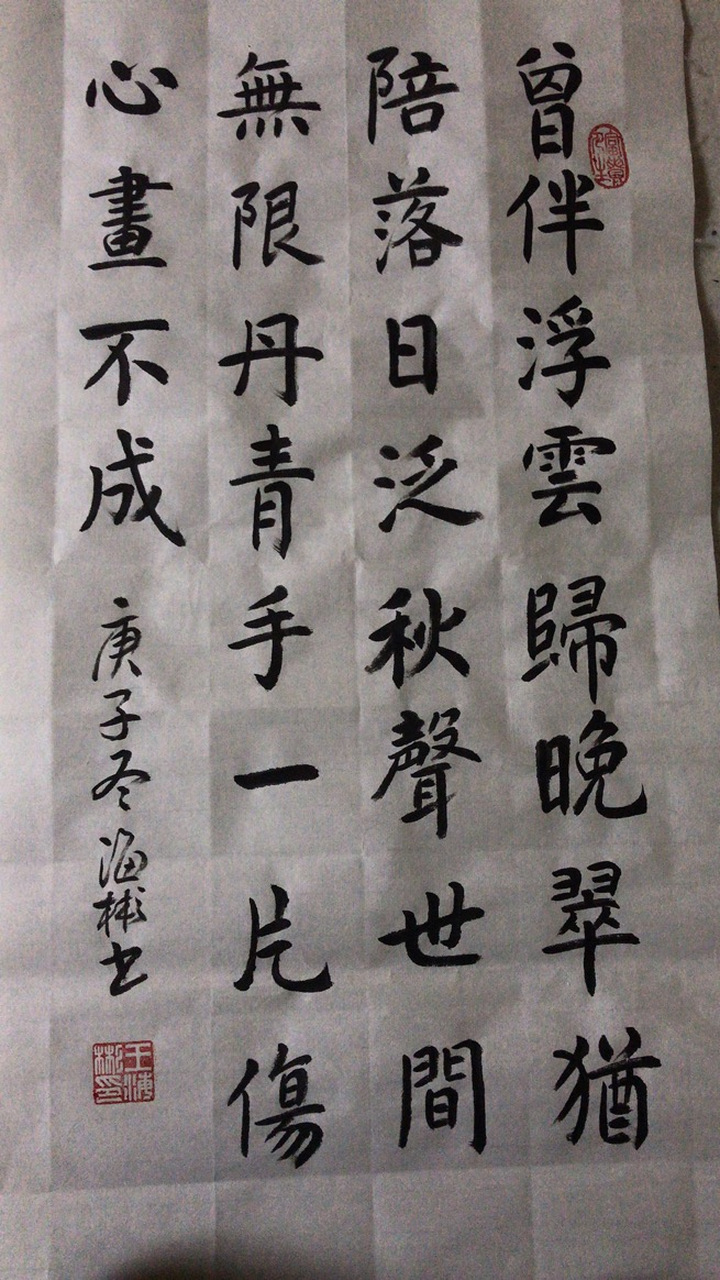 曾伴浮雲歸晚翠猶
陪落日泛秋聲世間
無限丹青手一片傷
心畫不成
庚子冬海彬书
王海彬印